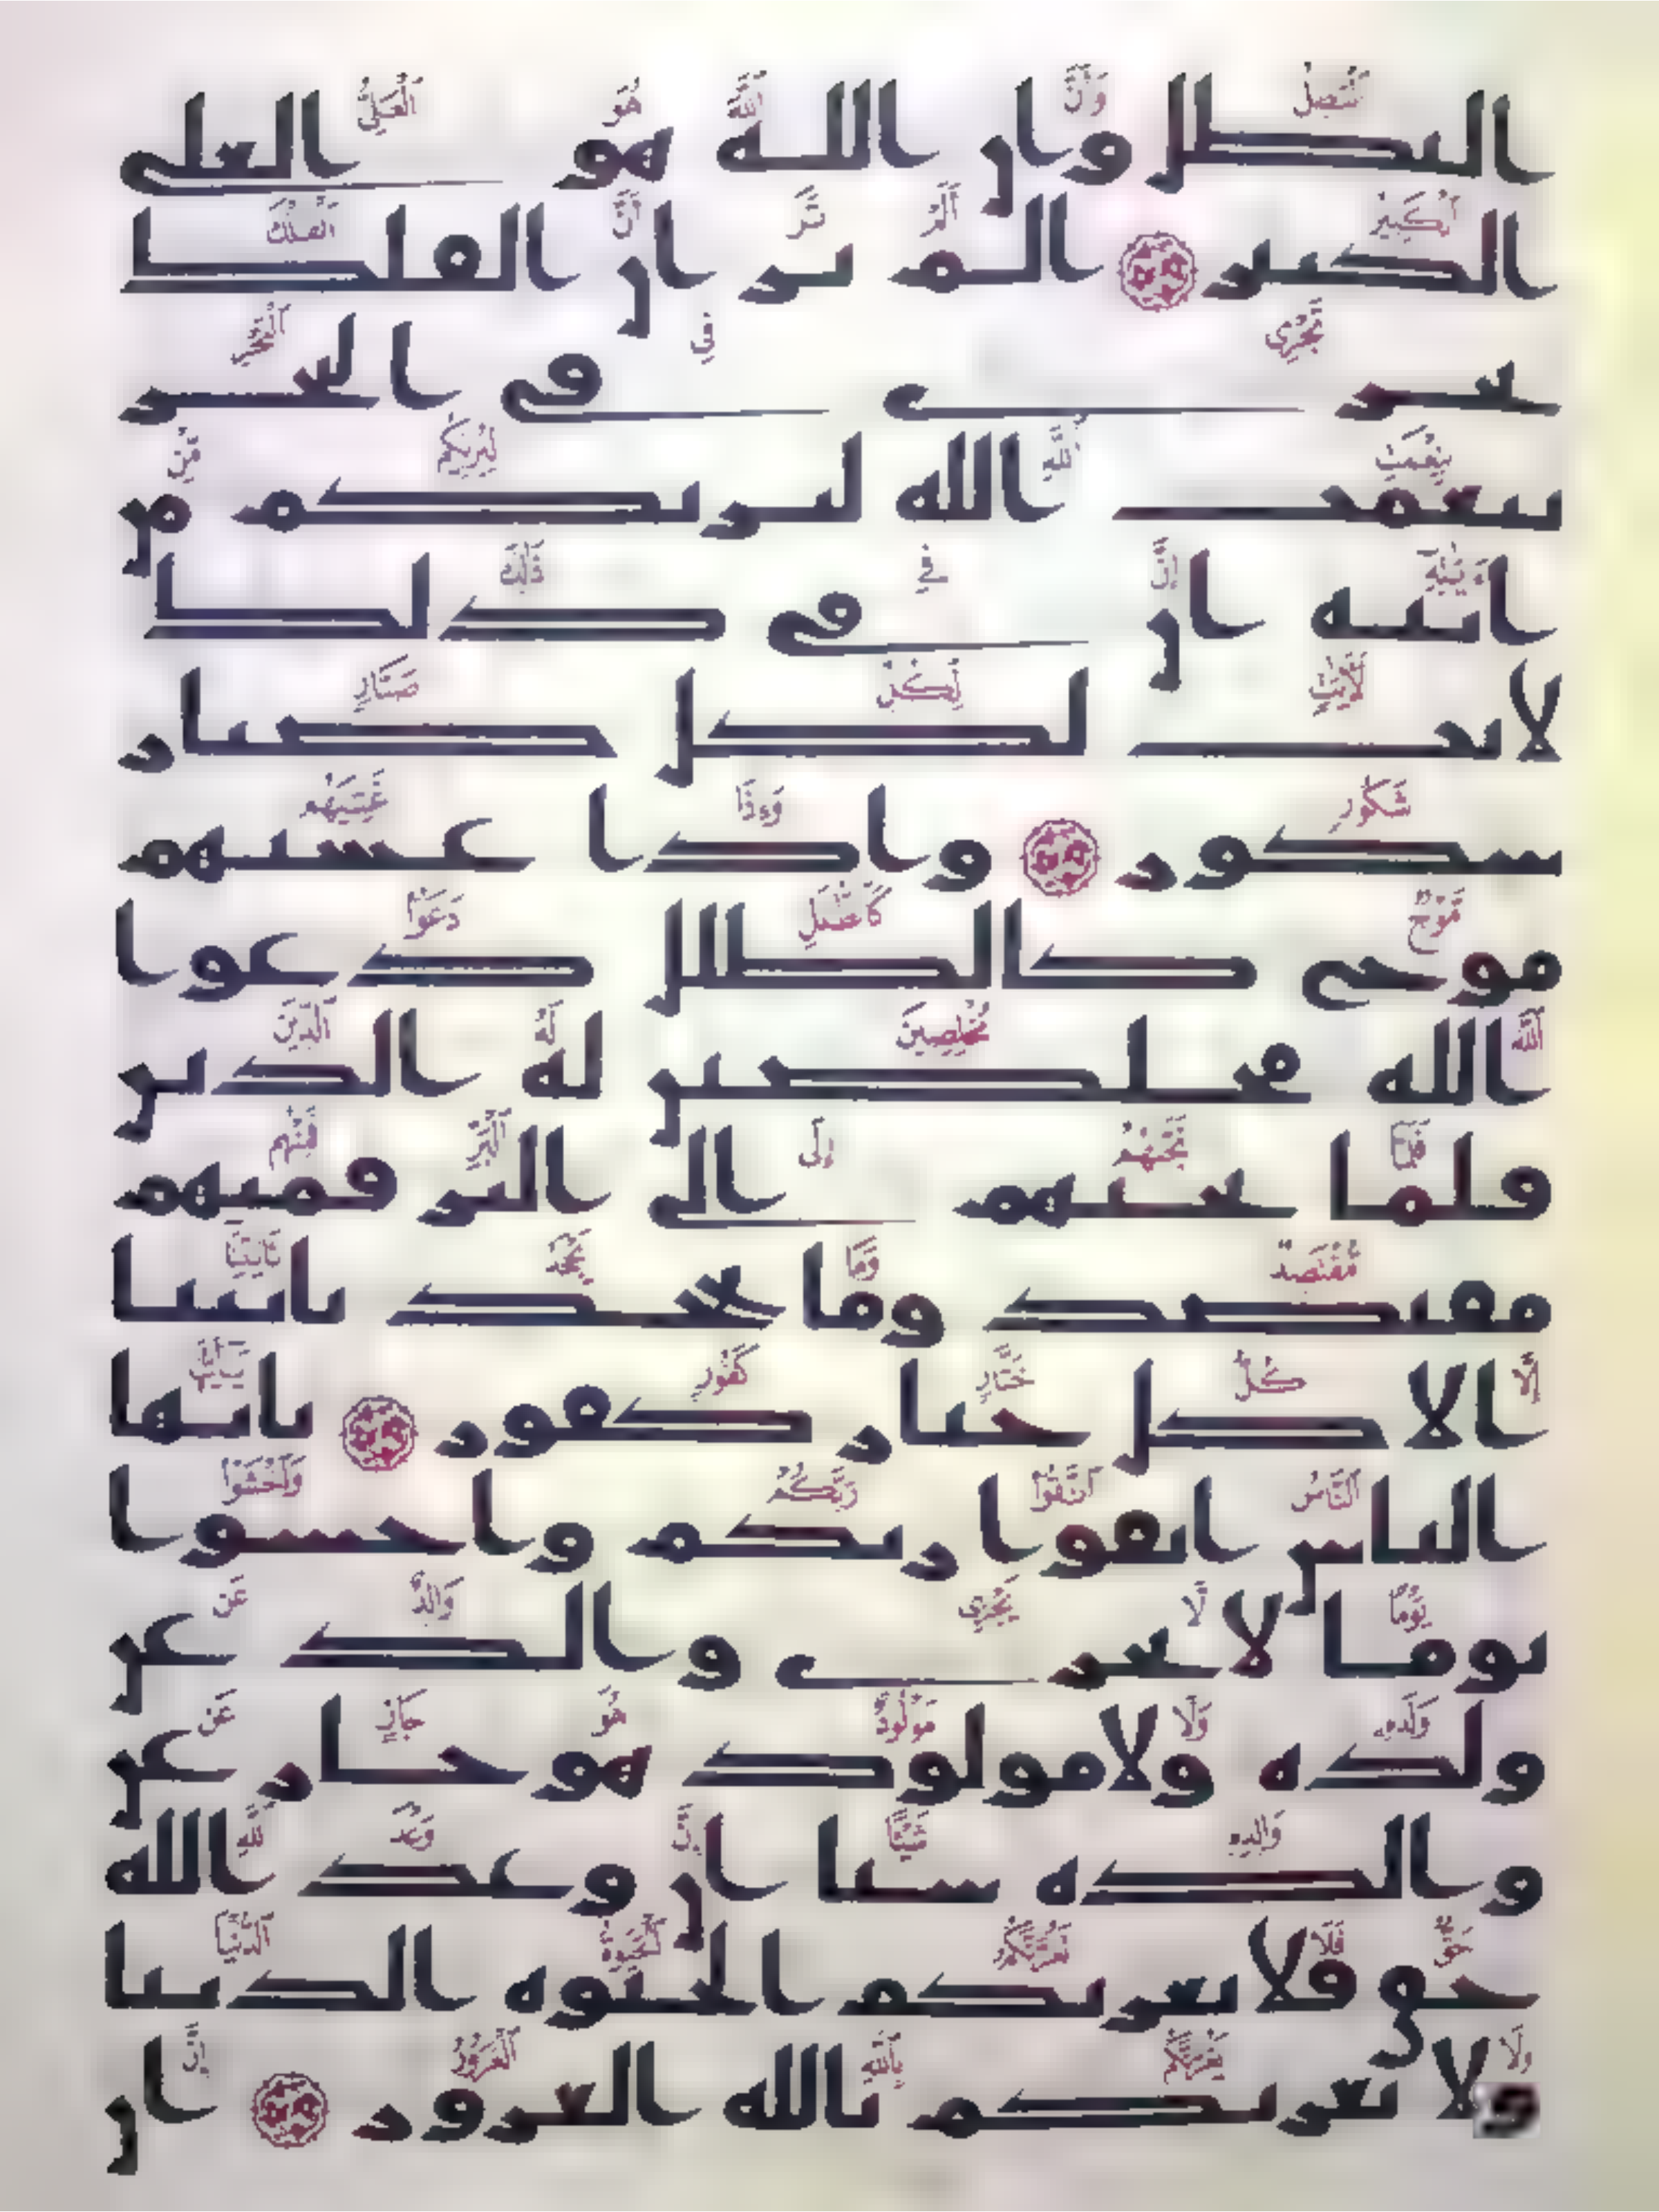 البطل وان الله هو العلى
الكبير الم تر ان الفلك
تجرى فى البحر
بنعمت الله ليريكم من
ايته ان فى ذلك
لايت لكل صبار
شكور واذا غشيهم
موج كالظلل دعوا
الله مخلصين له الدين
فلما نجيهم الى البر فمنهم
مقتصد وما يجحد بايتنا
الا كل ختار كفور يايها
الناس اتقوا ربكم واخشوا
يوما لا يجزى والد عن
ولده ولا مولود هو جاز عن
والده شيا ان وعد الله
حق فلا تغرنكم الحيوة الدنيا
ولا يغرنكم بالله الغرور ان